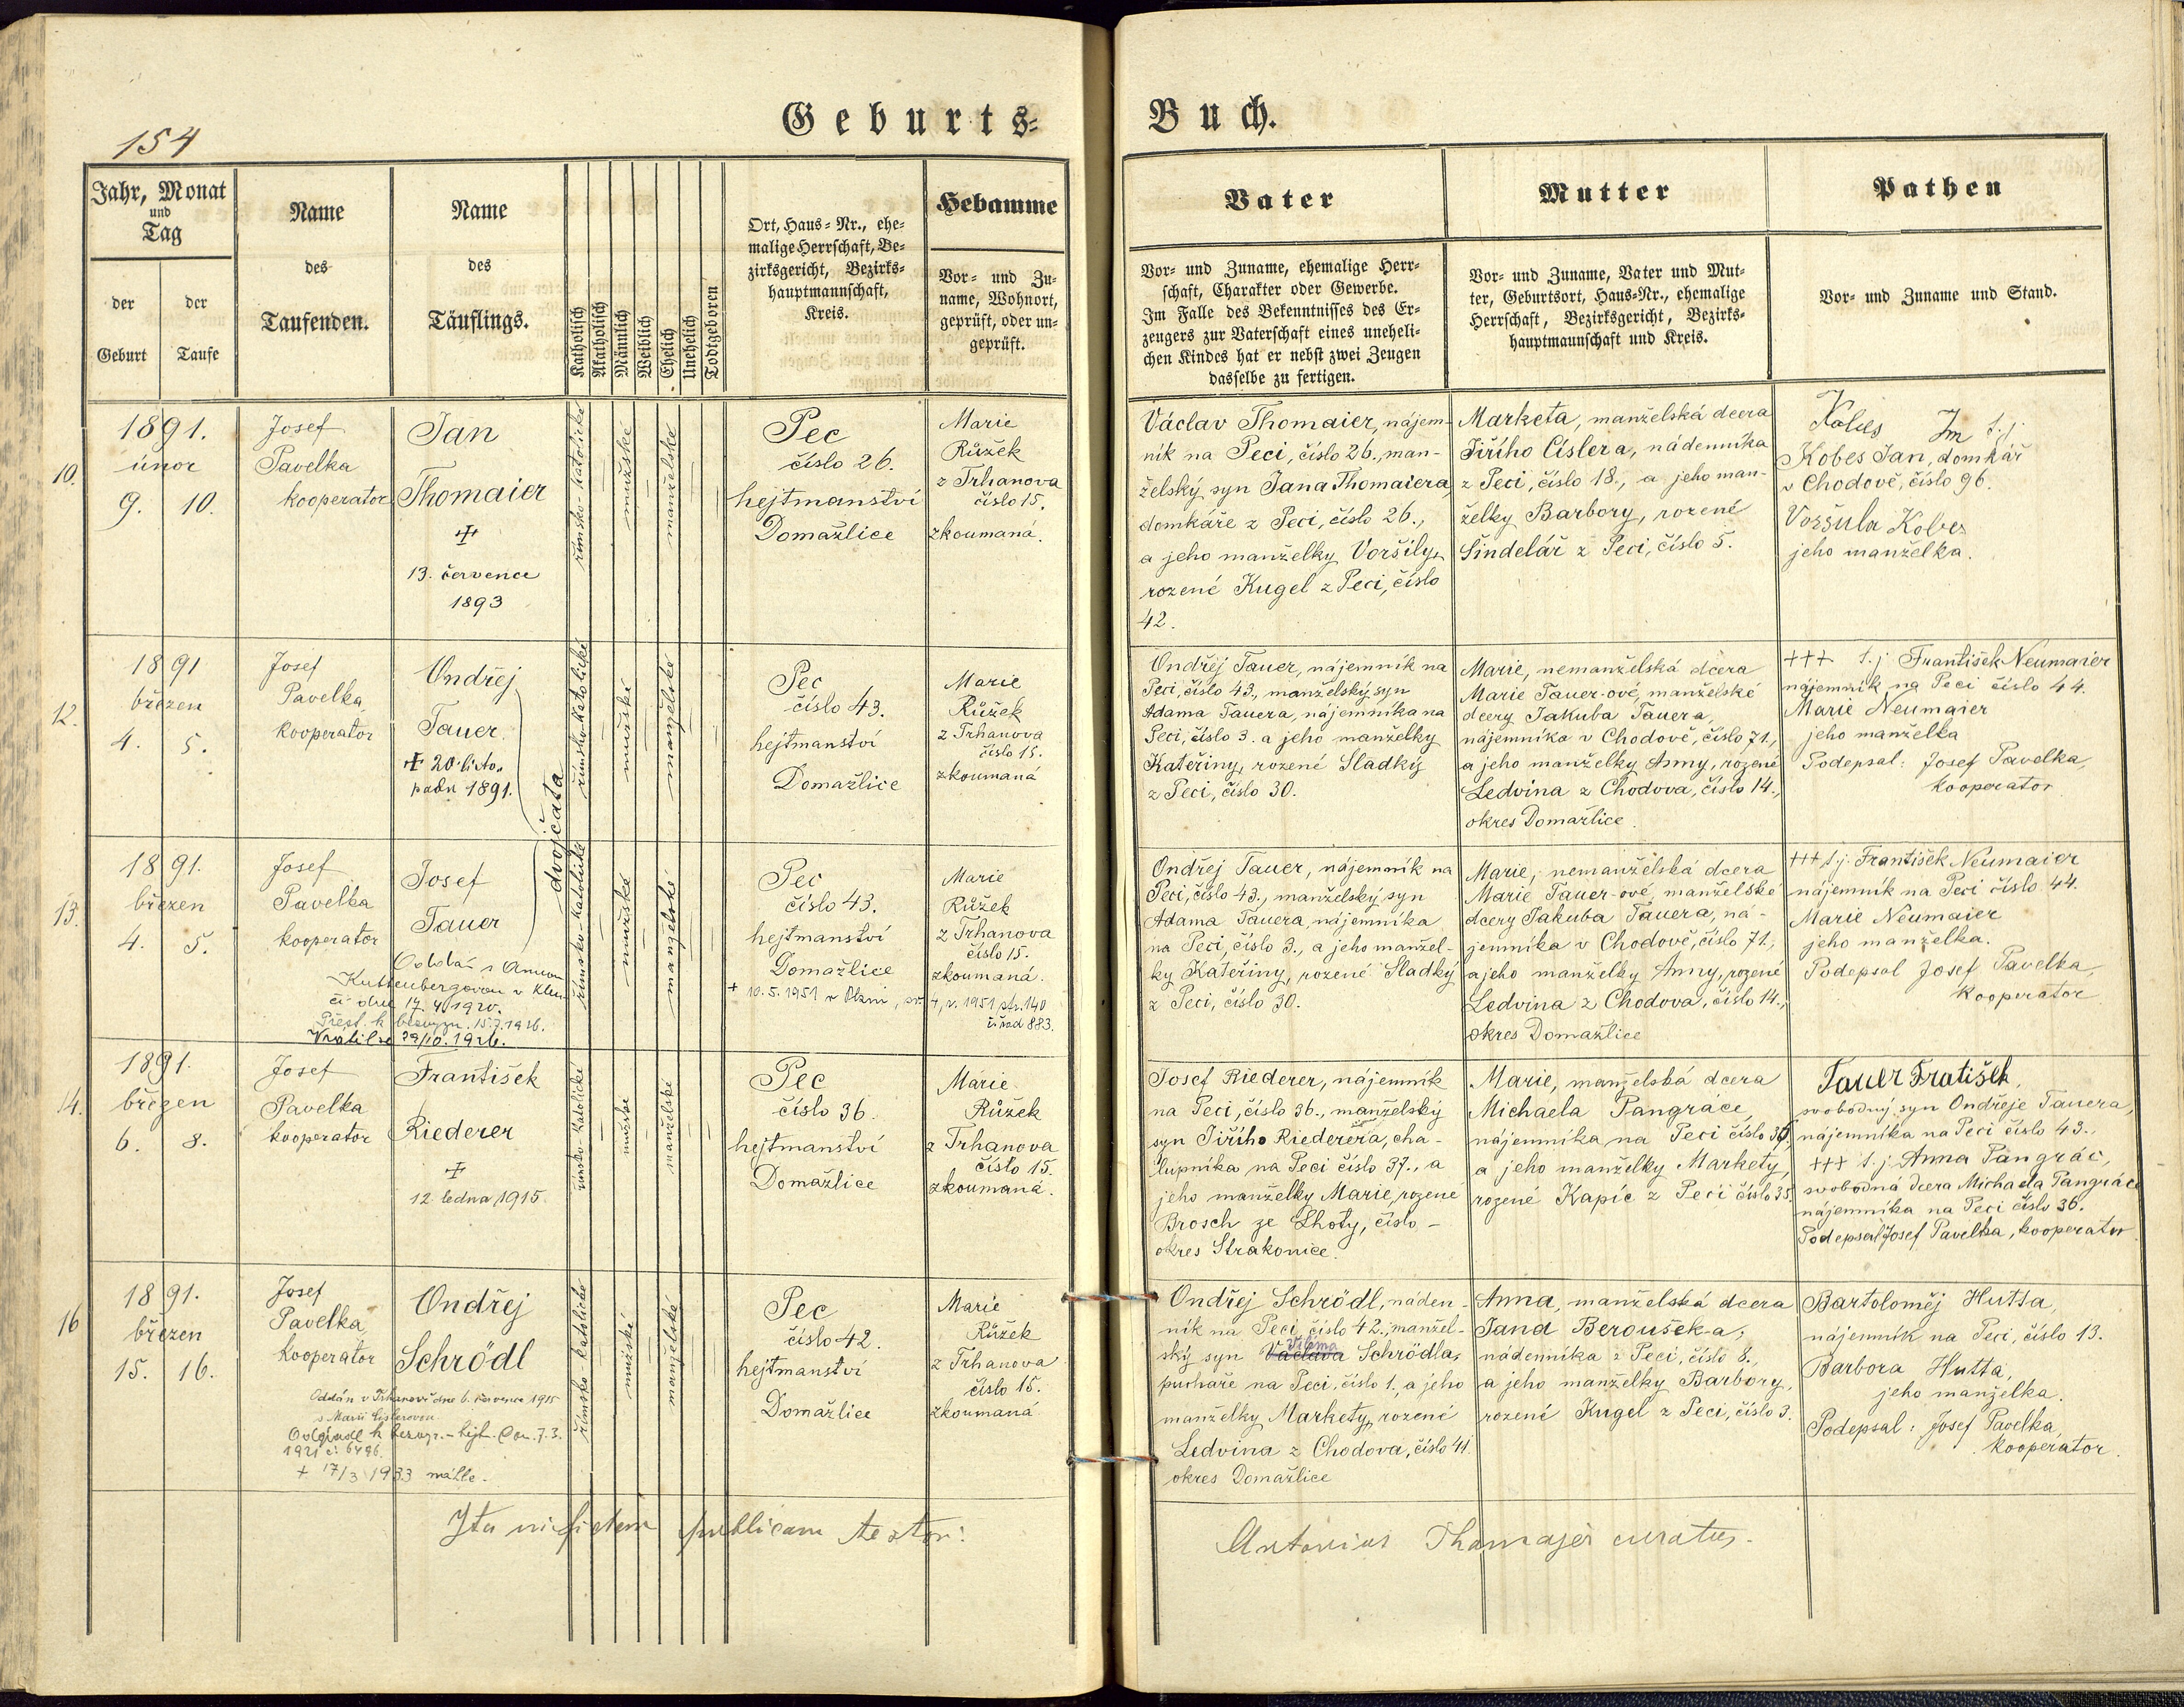 154
Geburts=
Buch.
Jahr, Monat
und
Tag
der
Geburt
der
Taufe
Name
des
Taufenden.
Name
des
Täuflings.
Katholisch
Akatholisch
Männlich
Weiblich
Ehelich
Unehelich
Todtgeboren
Ort, Haus=Nr., ehe=
malige Herrschaft, Be=
zirksgericht, Bezirks=
hauptmannschaft,
Kreis.
Hebamme
Vor= und Zu=
name, Wohnort,
geprüft, oder un=
geprüft.
Vater
Vor= und Zuname, ehemalige Herr=
schaft, Charakter oder Gewerbe.
Im Falle des Bekenntnisses des Er=
zeugers zur Vaterschaft eines uneheli=
chen Kindes hat er nebst zwei Zeugen
dasselbe zu fertigen.
Mutter
Vor= und Zuname, Vater und Mut=
ter, Geburtsort, Haus=Nr., ehemalige
Herrschaft, Bezirksgericht, Bezirks=
hauptmannschaft und Kreis.
Pathen
Vor= und Zuname und Stand.
10.
1891.
únor
9. 10.
Josef
Pavelka
kooperator
Jan
Thomaier
13. července
1893
římsko-katolické
mužské
manželské
Pec
číslo 26.
hejtmanství
Domažlice
Marie
Růžek
z Trhanova
číslo 15.
zkoumaná.
Václav Thomaier, nájem-
ník na Peci, číslo 26., man-
želský syn Jana Thomaiera,
domkáře z Peci, číslo 26.,
a jeho manželky Voršily,
rozené Kugel z Peci, číslo
42.
Marketa, manželská dcera
Jiřího Císlera, nádenníka
z Peci, číslo 18., a jeho man-
želky Barbory, rozené
Sindelář z Peci, číslo 5.
Kobes
Kobes Jan, domkář
v Chodově, číslo 96.
Voršula Kobes
jeho manželka.
12.
1891
březen
4. 5.
Josef
Pavelka,
kooperator
Ondřej
Tauer
20. listo-
padu 1891.
dvojčata
římsko-katolické
mužské
manželské
Pec
číslo 43.
hejtmanství
Domažlice
Marie
Růžek
z Trhanova
číslo 15.
zkoumaná
Ondřej Tauer, nájemník na
Peci, číslo 43., manželský syn
Adama Tauera, nájemníka na
Peci, číslo 3. a jeho manželky
Kateřiny, rozené Sladký
z Peci, číslo 30.
Marie, nemanželská dcera
Marie Tauer-ové, manželské
dcery Jakuba Tauera,
nájemníka v Chodově, číslo 71.,
a jeho manželky Anny, rozené
Ledvina z Chodova, číslo 14.,
okres Domažlice
+++ t.j. František Neumaier
nájemník na Peci číslo 44.
Marie Neumaier
jeho manželka
Podepsal: Josef Pavelka,
kooperator
13.
1891.
březen
4. 5.
Josef
Pavelka
kooperator
Josef
Tauer
Oddán s Annou
Kuttenbergovou v Klen-
čí dne 17. 4. 1920.
Přest. k bezvyzn. 15.7.1926.
Vrátil se 29/10. 1926.
římsko-katolické
mužské
manželské
Pec
číslo 43.
hejtmanství
Domažlice
Marie
Růžek
z Trhanova
číslo 15.
zkoumaná.
+ 10.5.1951 v Plzni,
r. 1951 str. 140
řad 883.
Ondřej Tauer, nájemník na
Peci, číslo 43., manželský syn
Adama Tauera, nájemníka
na Peci, číslo 3., a jeho manžel-
ky Kateřiny, rozené Sladký
z Peci, číslo 30.
Marie, nemanželská dcera
Marie Tauer-ové, manželské
dcery Jakuba Tauera, ná-
jemníka v Chodově, číslo 71.,
a jeho manželky Anny, rozené
Ledvina z Chodova, číslo 14.,
okres Domažlice
+++ t.j. František Neumaier
nájemník na Peci číslo 44.
Marie Neumaier
jeho manželka.
Podepsal Josef Pavelka,
kooperator
14.
1891.
březen
6. 8.
Josef
Pavelka
kooperator
František
Riederer
12. ledna 1915
římsko-katolické
mužské
manželské
Pec
číslo 36.
hejtmanství
Domažlice
Marie
Růžek
z Trhanova
číslo 15.
zkoumaná.
Josef Riederer, nájemník
na Peci, číslo 36., manželský
syn Jiřího Riederera, cha-
lupníka na Peci číslo 37., a
jeho manželky Marie, rozené
Brosch ze Lhoty, číslo -
okres Strakonice.
Marie, manželská dcera
Michaela Pangráce,
nájemníka na Peci číslo 36,
a jeho manželky Markety,
rozené Kapic z Peci číslo 35.
Tauer Fratišek,
svobodný syn Ondřeje Tauera,
nájemníka na Peci číslo 43.,
+++ t.j. Anna Pangrác,
svobodná dcera Michaela Pangráce
nájemníka na Peci číslo 36.
Podepsal Josef Pavelka, kooperator
16
1891.
březen
15. 16.
Josef
Pavelka,
kooperator
Ondřej
Schrödl
Oddán v Trhanově dne 6. července 1915
s Marií Cislerovou
Odpadl k bezvyz. - hejt. Dom. 7.3.
1921 č: 6496.
+ 17/3 1933
římsko-katolické
mužské
manželské
Pec
číslo 42.
hejtmanství
Domažlice
Marie
Růžek
z Trhanova
číslo 15.
zkoumaná
Ondřej Schrödl, náden-
ník na Peci číslo 42., manžel-
ský syn Václava Viléma Schrödla,
puchaře na Peci, číslo 1., a jeho
manželky Markety, rozené
Ledvina z Chodova, číslo 41.
okres Domažlice
Anna, manželská dcera
Jana Beroušek-a,
nádenníka z Peci, číslo 8.,
a jeho manželky Barbory,
rozené Kugel z Peci, číslo 3.
Bartoloměj Hutta,
nájemník na Peci, číslo 13.
Barbora Hutta,
jeho manželka.
Podepsal: Josef Pavelka,
kooperator.
Ita in fidem publicam testor:
Antonius Thamajer curatus.